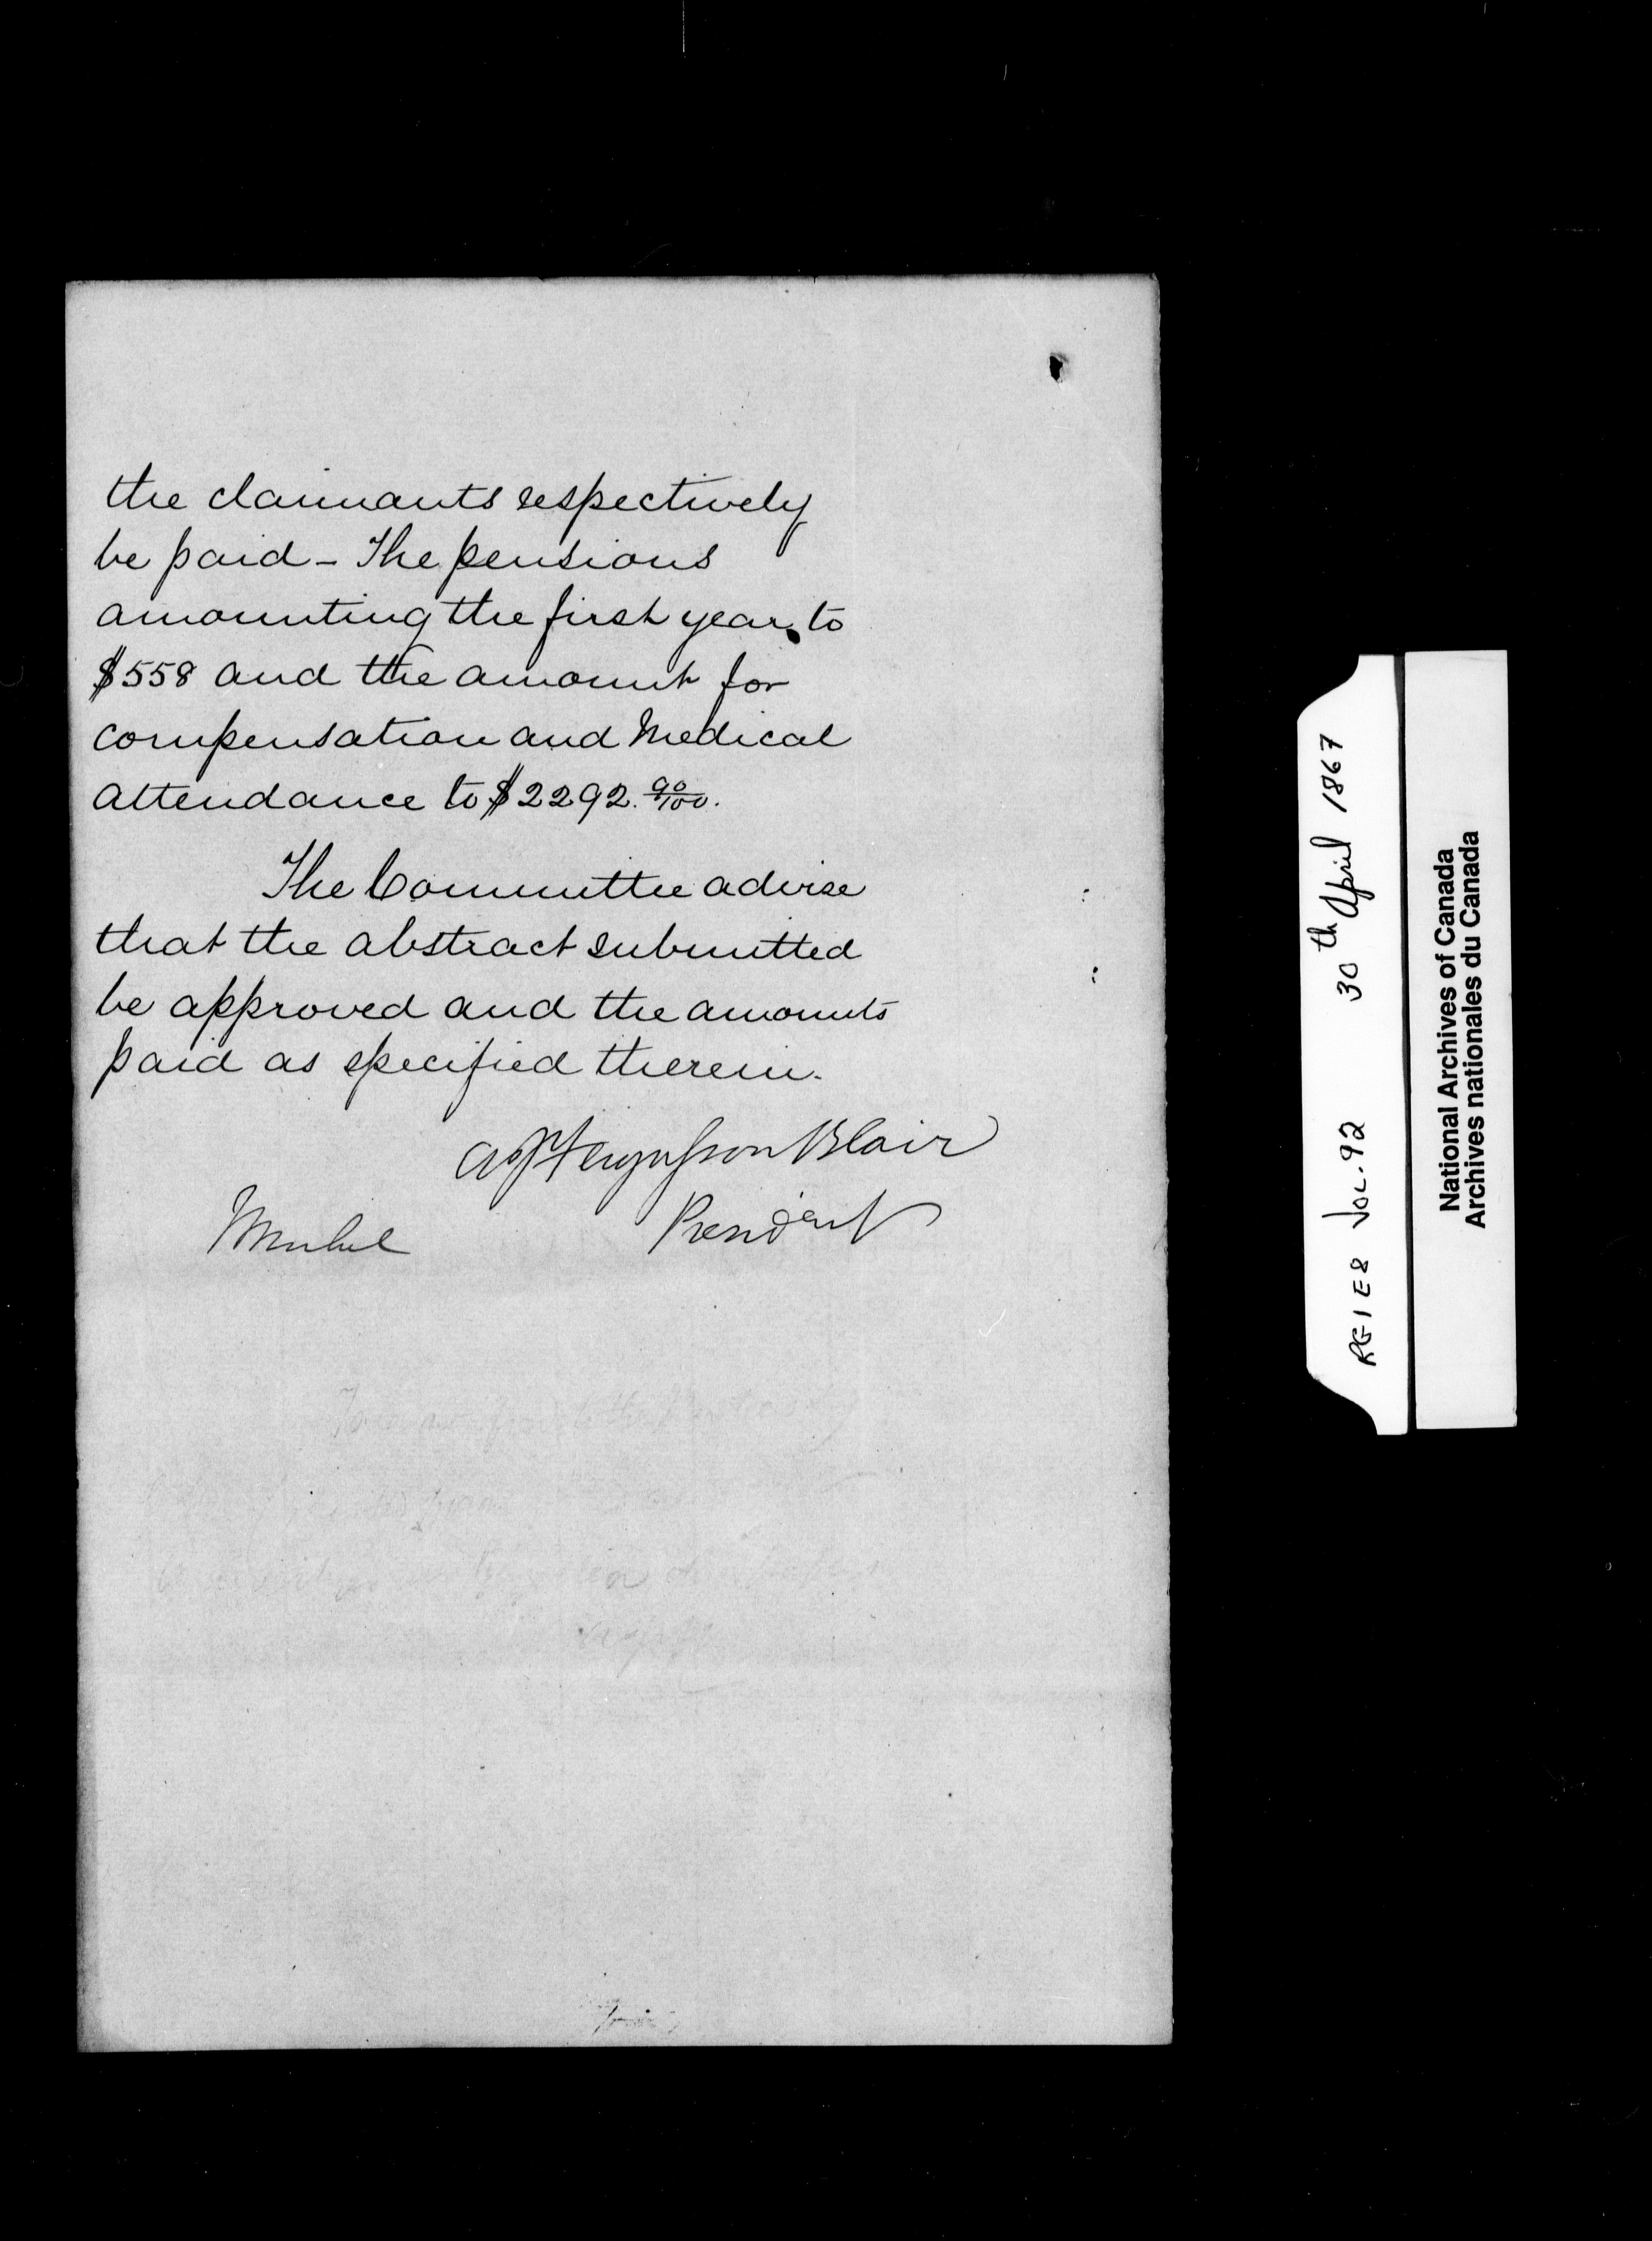 the claimants respectively
be paid - The pensions
amounting the first year to
$558 and the amount for
compensation and Medical
attendance to $2292. 90/100.
The Committee advise
that the abstract submitted
be approved and the amounts
paid as specified therein.
A J Fergusson Blair
President
RG1 E8 VOL. 92 30th April 1867
National Archives of Canada
Archives nationales du Canada